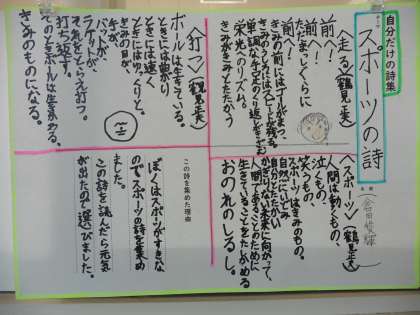 自分だけの詩集
テーマ
スポーツの詩
名前
〈走る〉（鶴見正夫）
前へ！
前へ！
ただまっしぐらに
前へ！
きみの前にはゴールがまつ、
きみのあとには
単調な手足のくり返しだが
栄光へのリズム。
きみがきみとたたかう
〈スポーツ〉（鶴見正夫）
人間は動くもの、
泣くもの、
笑うもの、
スポーツはきみのもの。
自然にいどみ
自分とたたかい
かぎりない未来に向かって、
人間であることのために
生きていることをたしかめる
おのれのしるし。
〈打つ〉（鶴見正夫）
ボールは生きている。
ときには曲がり
ときには速く
ときにはゆっくりと。
きみの目が
手が、
バットが、
ラケットが、
それをとらえ打つ。
打ち返す。
そのときボールは生まれかわる、
きみのものになる。
この詩を集めた理由
ぼくはスポーツがすきな
のでスポーツの詩を集め
ました。
この詩を読んだら元気
が出たので選びました。